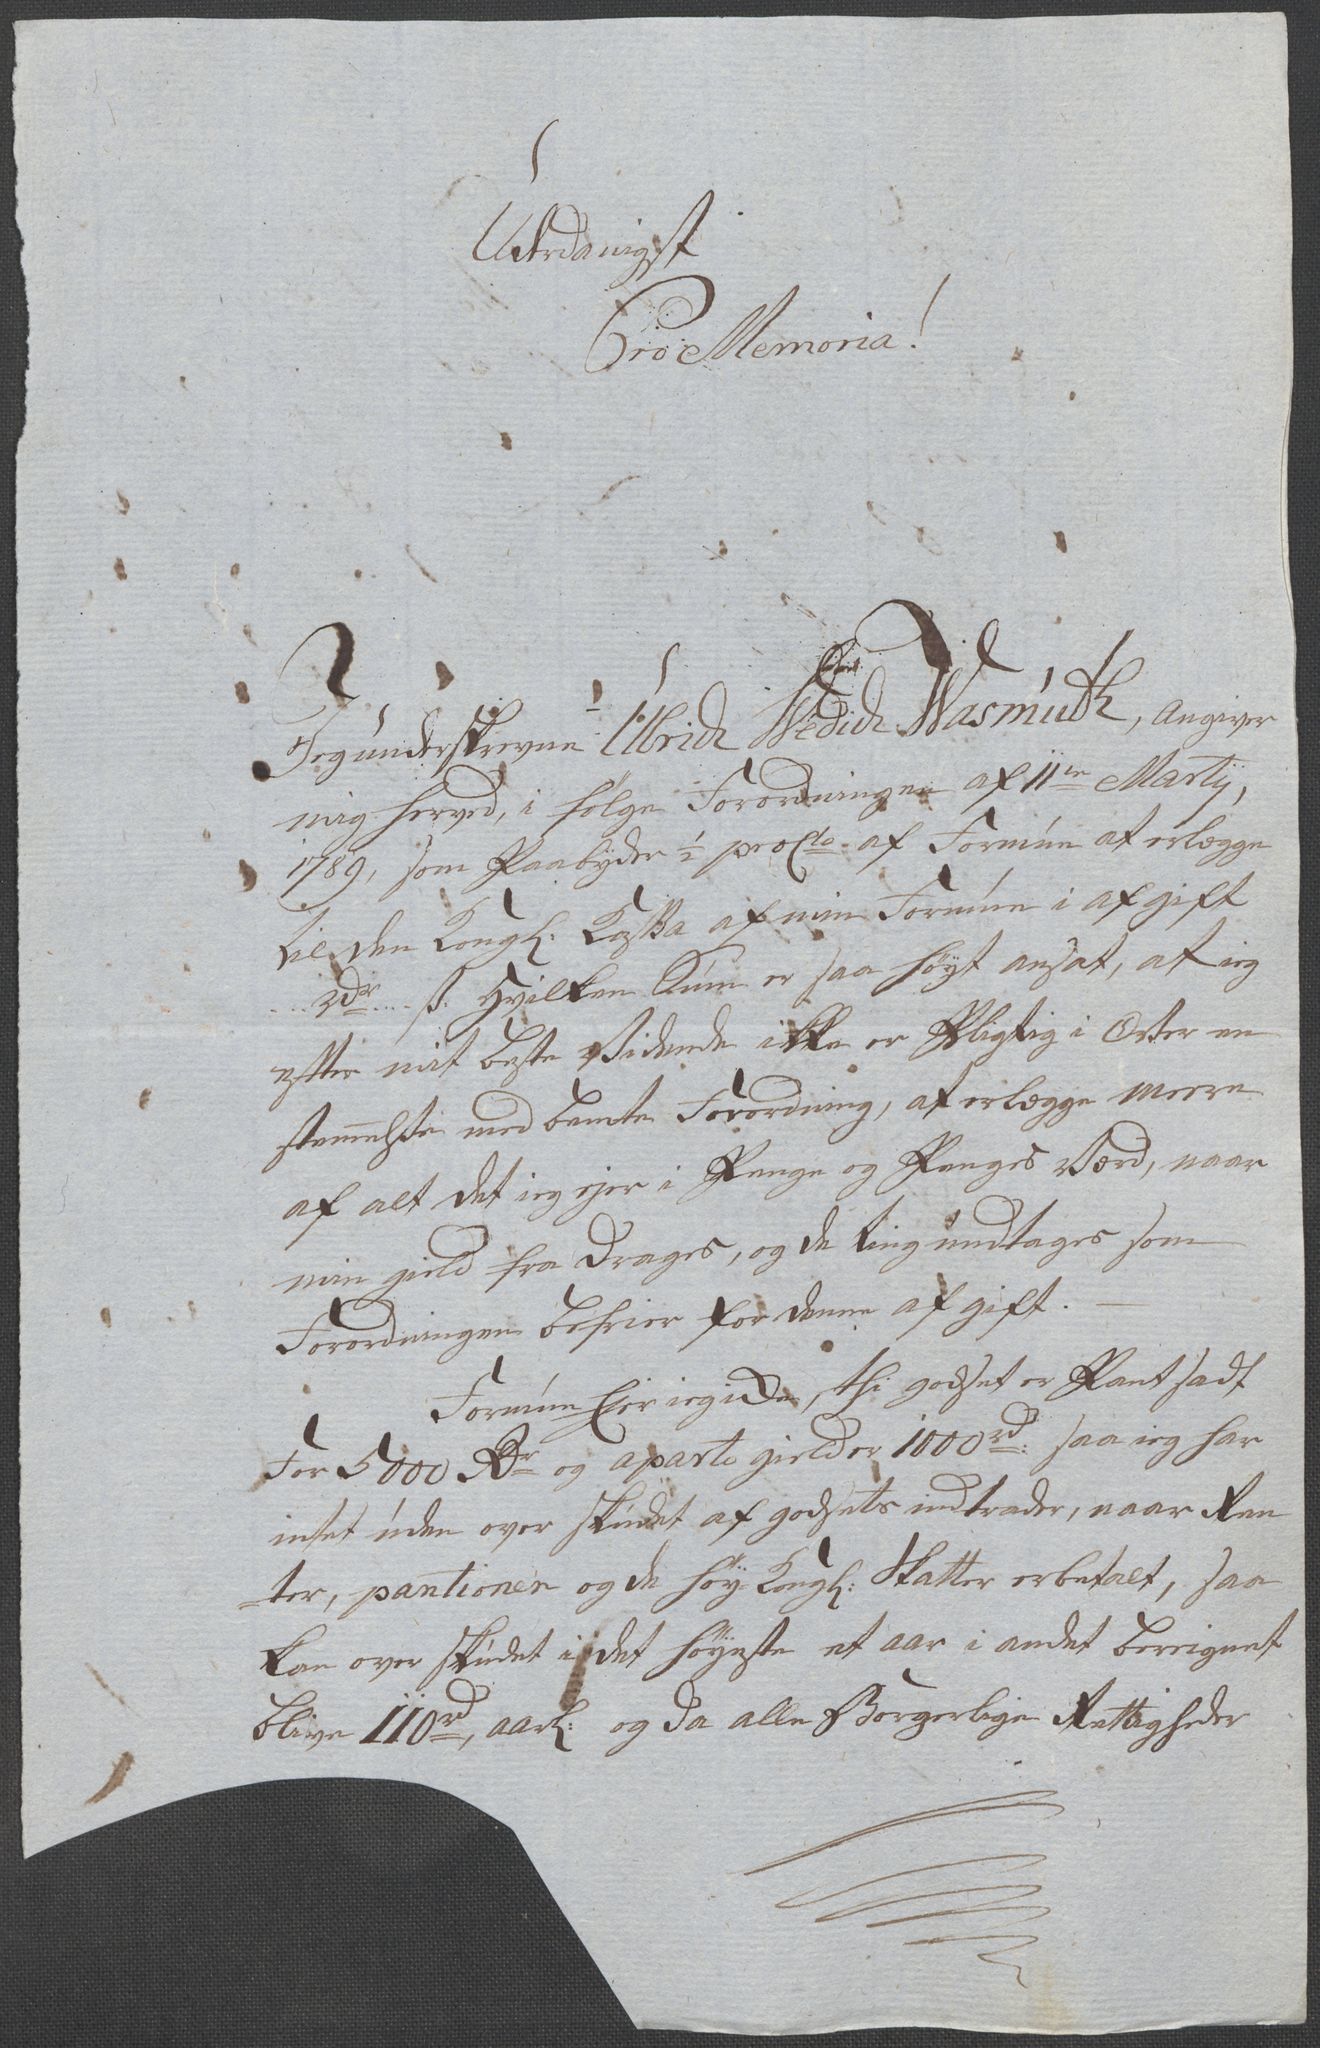 Uderdanigst
Pro Memoria!
Jeg underskrevne Ulrich Wedich Wasmuth, angiver
mig herved, i følge Forordningen af 11te Martij,
1789, som Paabyder ½ proCto af Formúe at erlægge
til den Kongl: Kassa af min Formúe i afgift
... rdr ... s. Hvilken Súm er saa høyt ansat, at ieg
efter mit beste Vidende ikke er Pligtig i Over een
stemmelsse med bemte Forordning, at erlegge meere
af alt det ieg ejer i Penge og Penges Værd, naar
min gield fra drages, og de ting undtages som
Forordningen befrier for denne afgift. —
Formúe Ejer ieg icke, thi godset er Pant sadt
For 5000 Rdr og aparte gield er 1000 rd: saa ieg har
intet úden over skúdet af godsets indtrader, naar Ren
ter, pantioner og de høy Kongl: Skatter er betalt, saa
kan over skúdet i det høyeste et aar i andet bereignet
blive 110 rd, aarl: og da alle Borgerlige Rettigheder